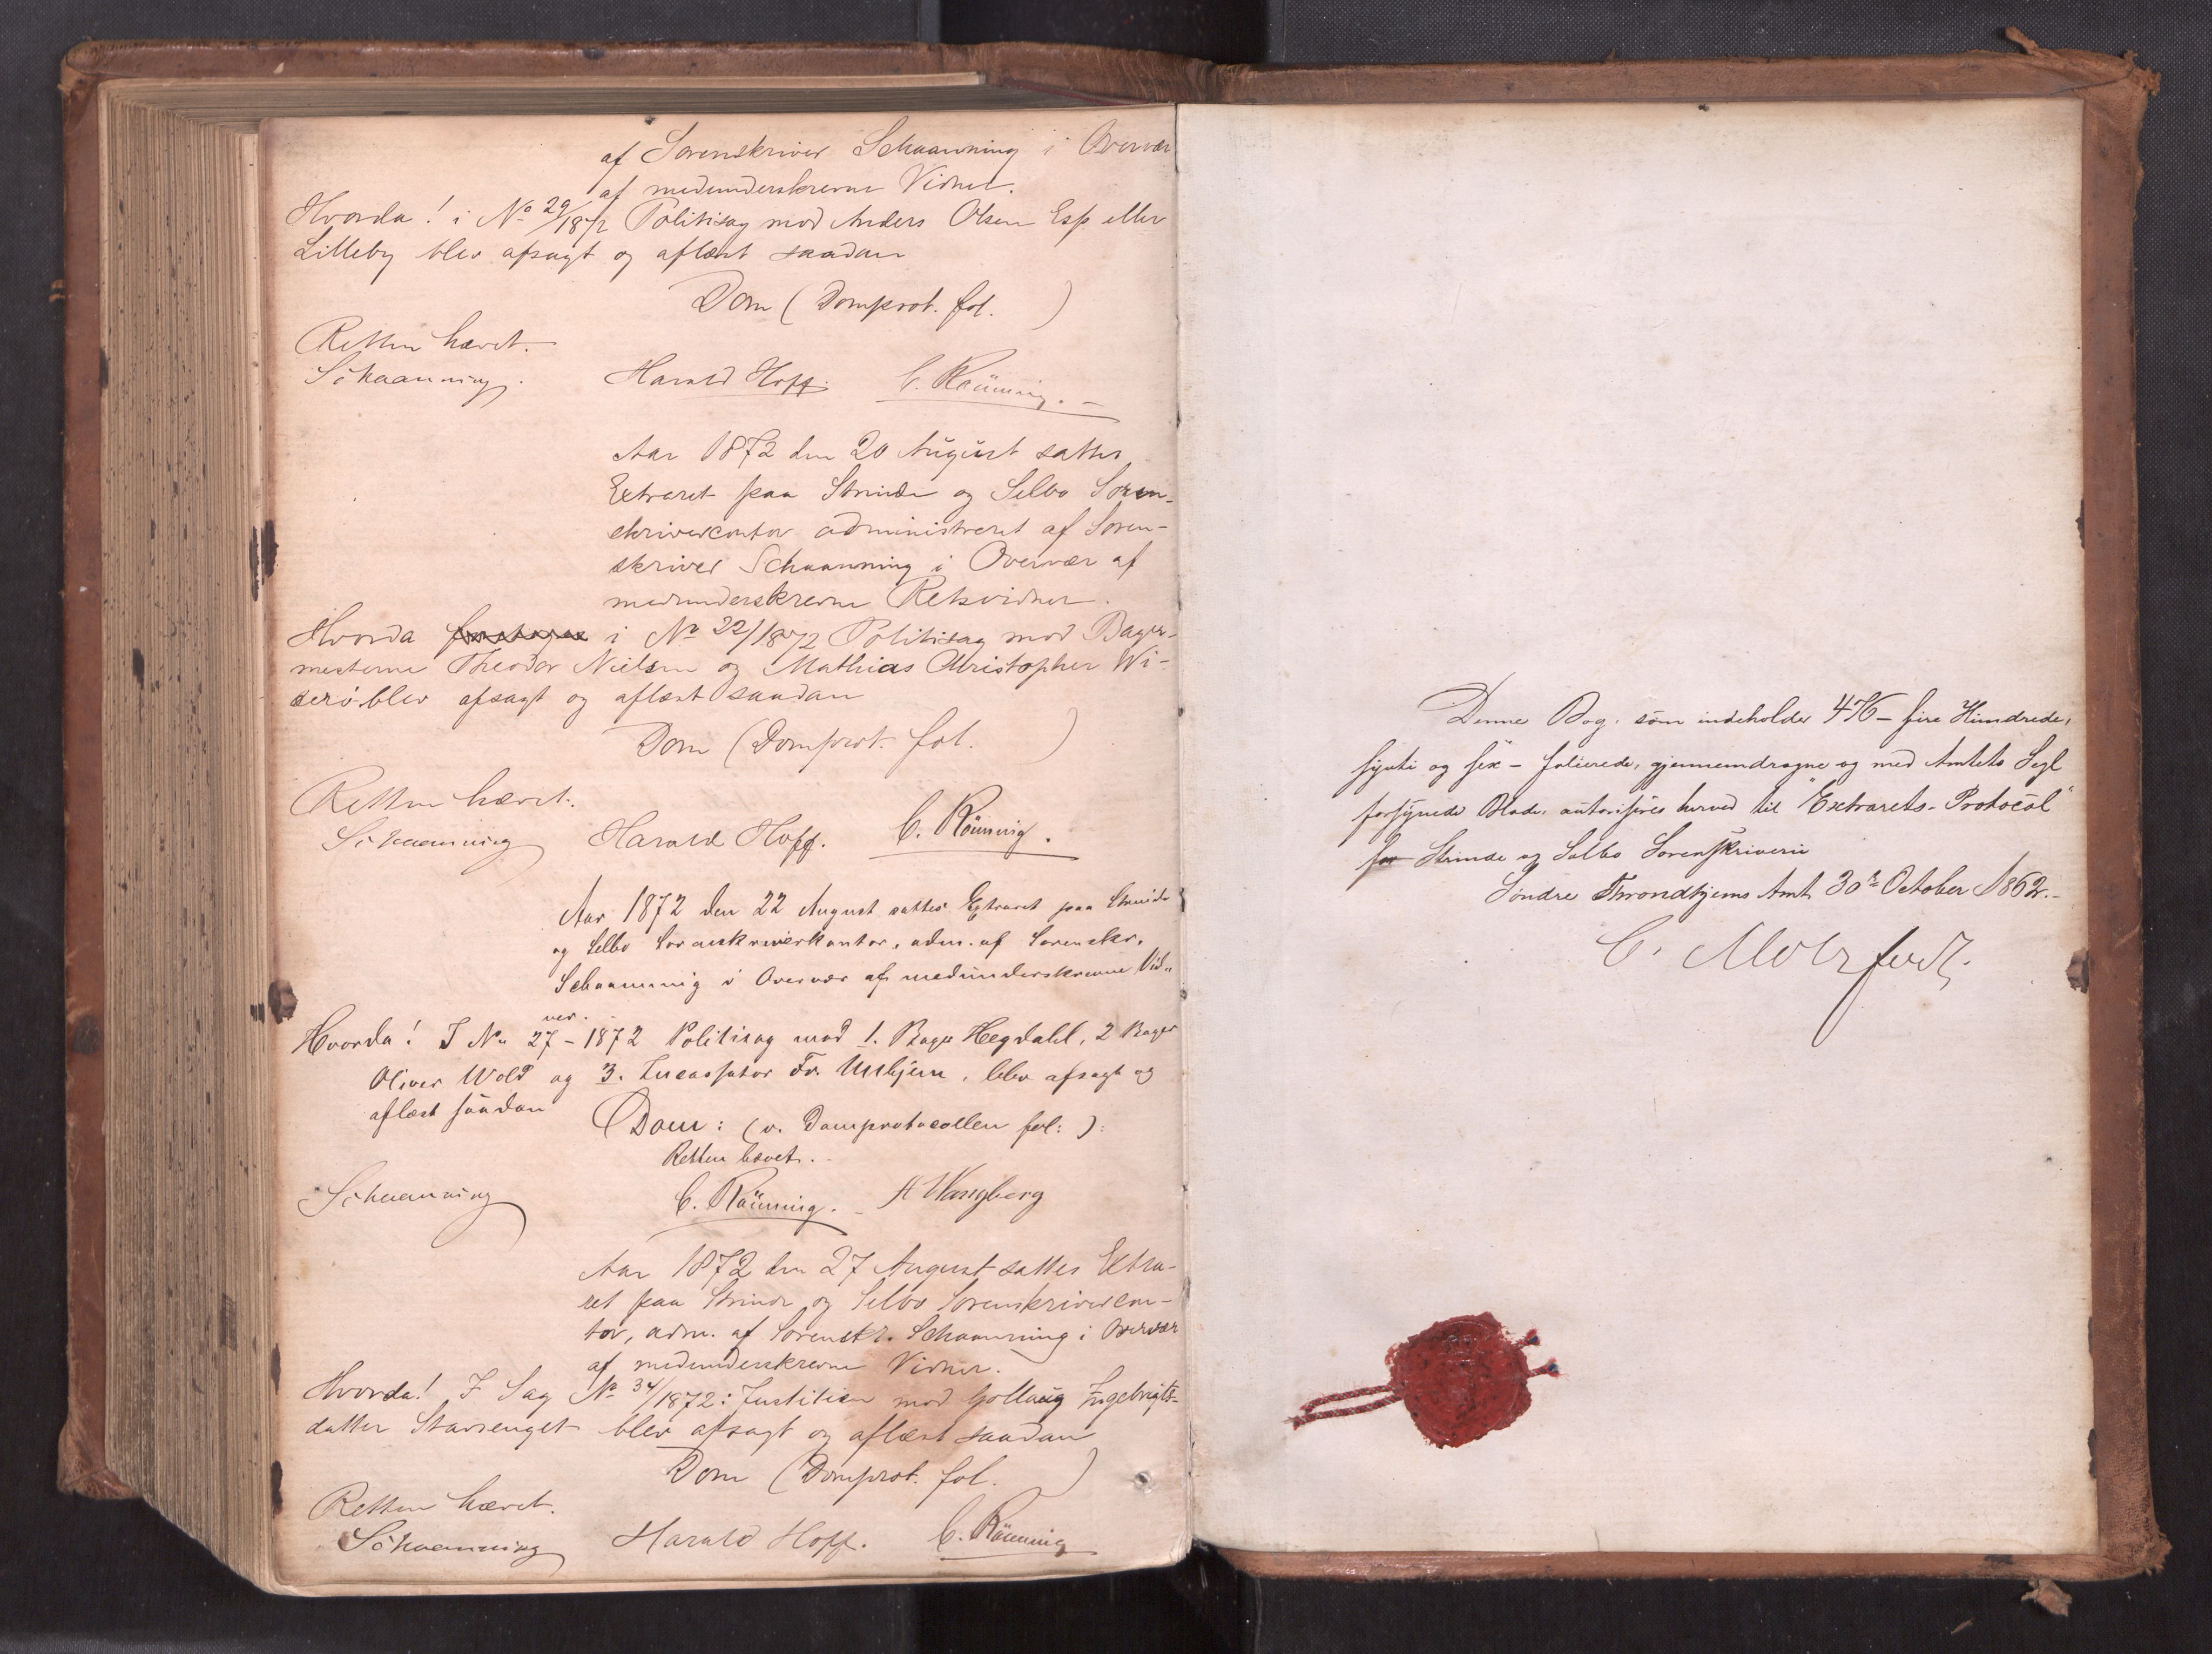 af Sorenskriver Schaanning i Overvær
af medunderskrevne Vidner.
Hvorda! i No 29/1872 Politisag mod Anders Olsen Esp eller
Lilleby blev afsagt og aflæst saadan
Dom (Domprot. fol. )
Retten hævet.
Schaanning. Harald Hoff. C. Rönning.
Aar 1872 den 20 August sattes
Extraret paa Strinde og Selbo Soren-
skrivercontor administreret af Soren-
skriver Schaanning i Overvær af
medunderskrevne Retsvidner.
Hvorda i No 22/1872 Politisag mod Bager-
mesterne Theodor Nielsen og Mathias Christopher Wi-
derö blev afsagt og aflæst saadan
Dom (Domprot. fol. )
Retten hævet.
Schaanning Harald Hoff. C. Rönning.
Aar 1872 den 22 August sattes Extraret paa Strinde
og Selbo Sorenskriverkontor, adm. af Sorenskr.
Schaanning i Overvær af medunderskrevne Vid-
ner.
Hvorda! I No 27-1872 Politisag mod 1. Bager Hegdahl, 2 Bager
Oliver Wold og 3. Incassator Fr. Ushjem, blev afsagt og
aflæst saadan
Dom: (v. Domprotocollen fol: )
Retten hævet.
Schaanning C. Rönning. H Wangberg
Aar 1872 den 27 August sattes Extra-
ret paa Strinde og Selbo Sorenskrivercon-
tor, adm. af Sorenskr. Schaanning i Overvær
af medunderskrevne Vidner.
Hvorda! I Sag No 34/1872: Justitien mod Gollaug Ingebrigts-
datter Stavsenget blev afsagt og aflæst saadan
Dom (Domprot. fol. )
Retten hævet.
Schaanning Harald Hoff. C. Rönning
Denne Bog, som indeholder 476 - fire Hundrede,
syvti og sex - folierede, gjennemdragne og med Amtets Segl
forsynede Blade, autoriseres herved til "Extrarets-Protocol"
for Strinde og Selbo Sorenskriveri
Söndre Throndhjems Amt 30 October 1862.